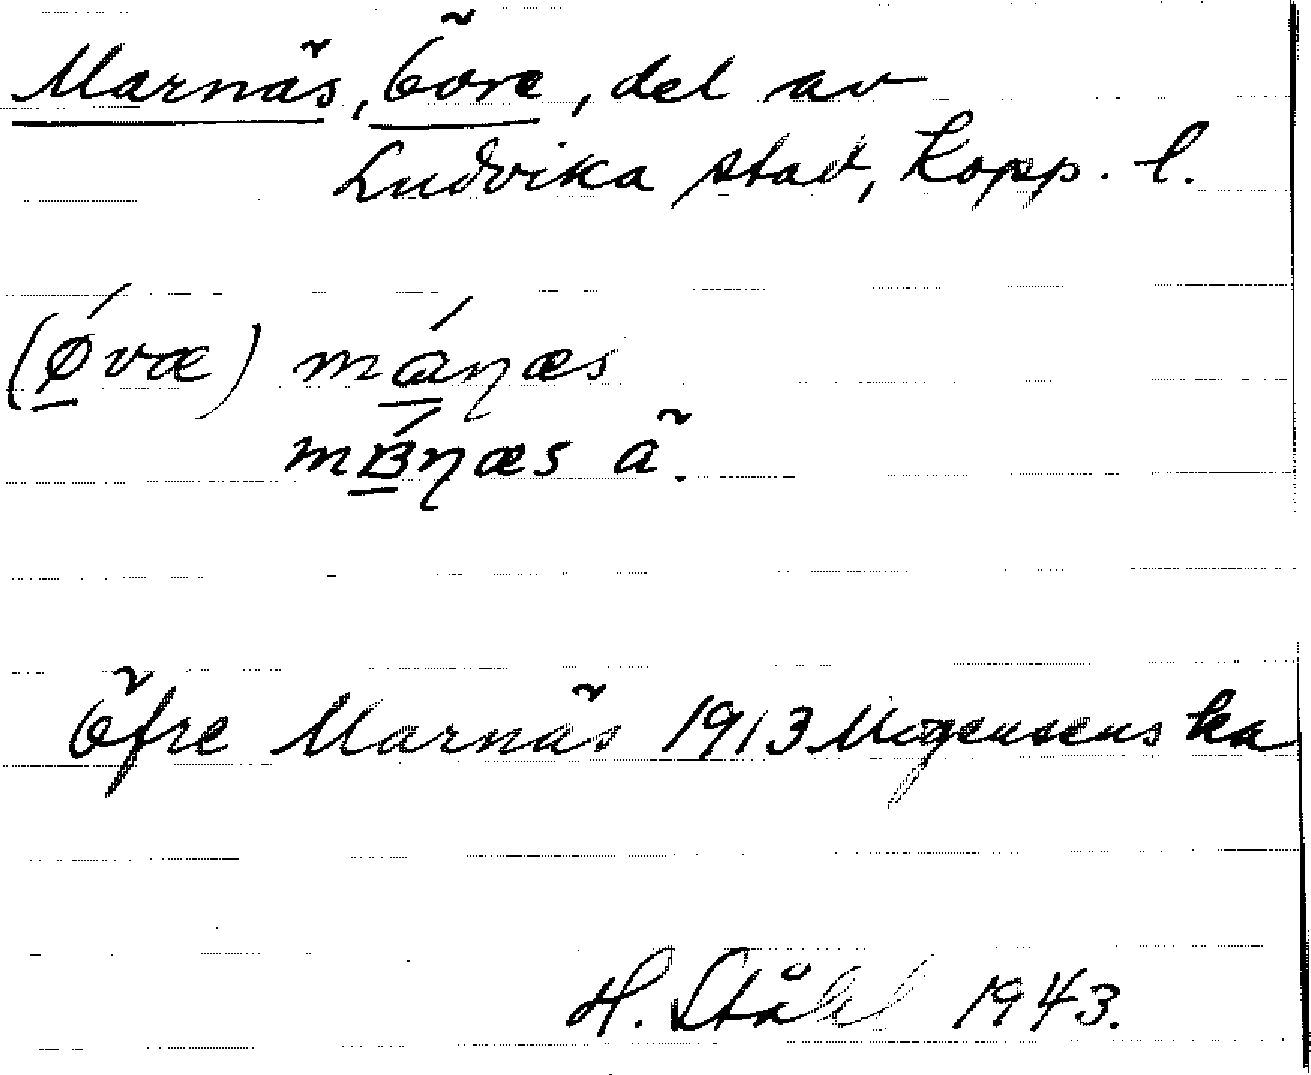 Marnäs, Övre, del av
Ludvika stad, Kopp. l.
(ǿvæ) máŋæs
mɞ́ŋæs ä.
Öfre Marnäs 1913 Mogensens ka
H. Ståhl 1943.